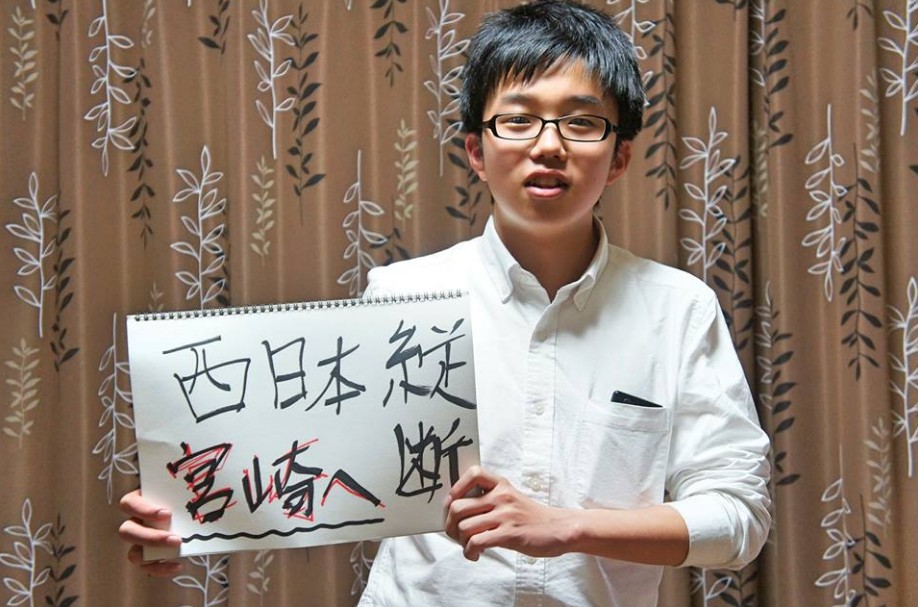 西日本縦断
宮崎へ